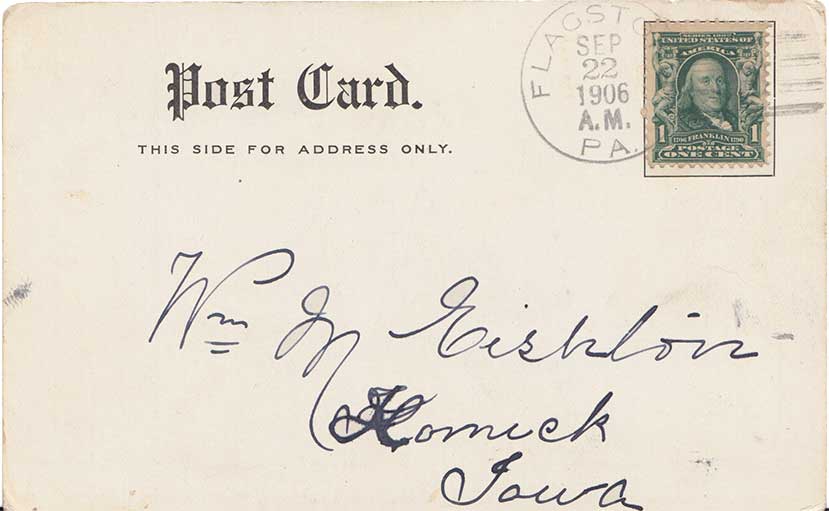 Post Card.
THIS SIDE FOR ADDRESS ONLY.
FLAGSTO
SEP
22
1906
A.M.
PA.
SERIES 1902
UNITED STATES OF
AMERICA
1 1706 FRANKLIN 1790 1
POSTAGE
ONE CENT
Wm M
Hornick
Iowa